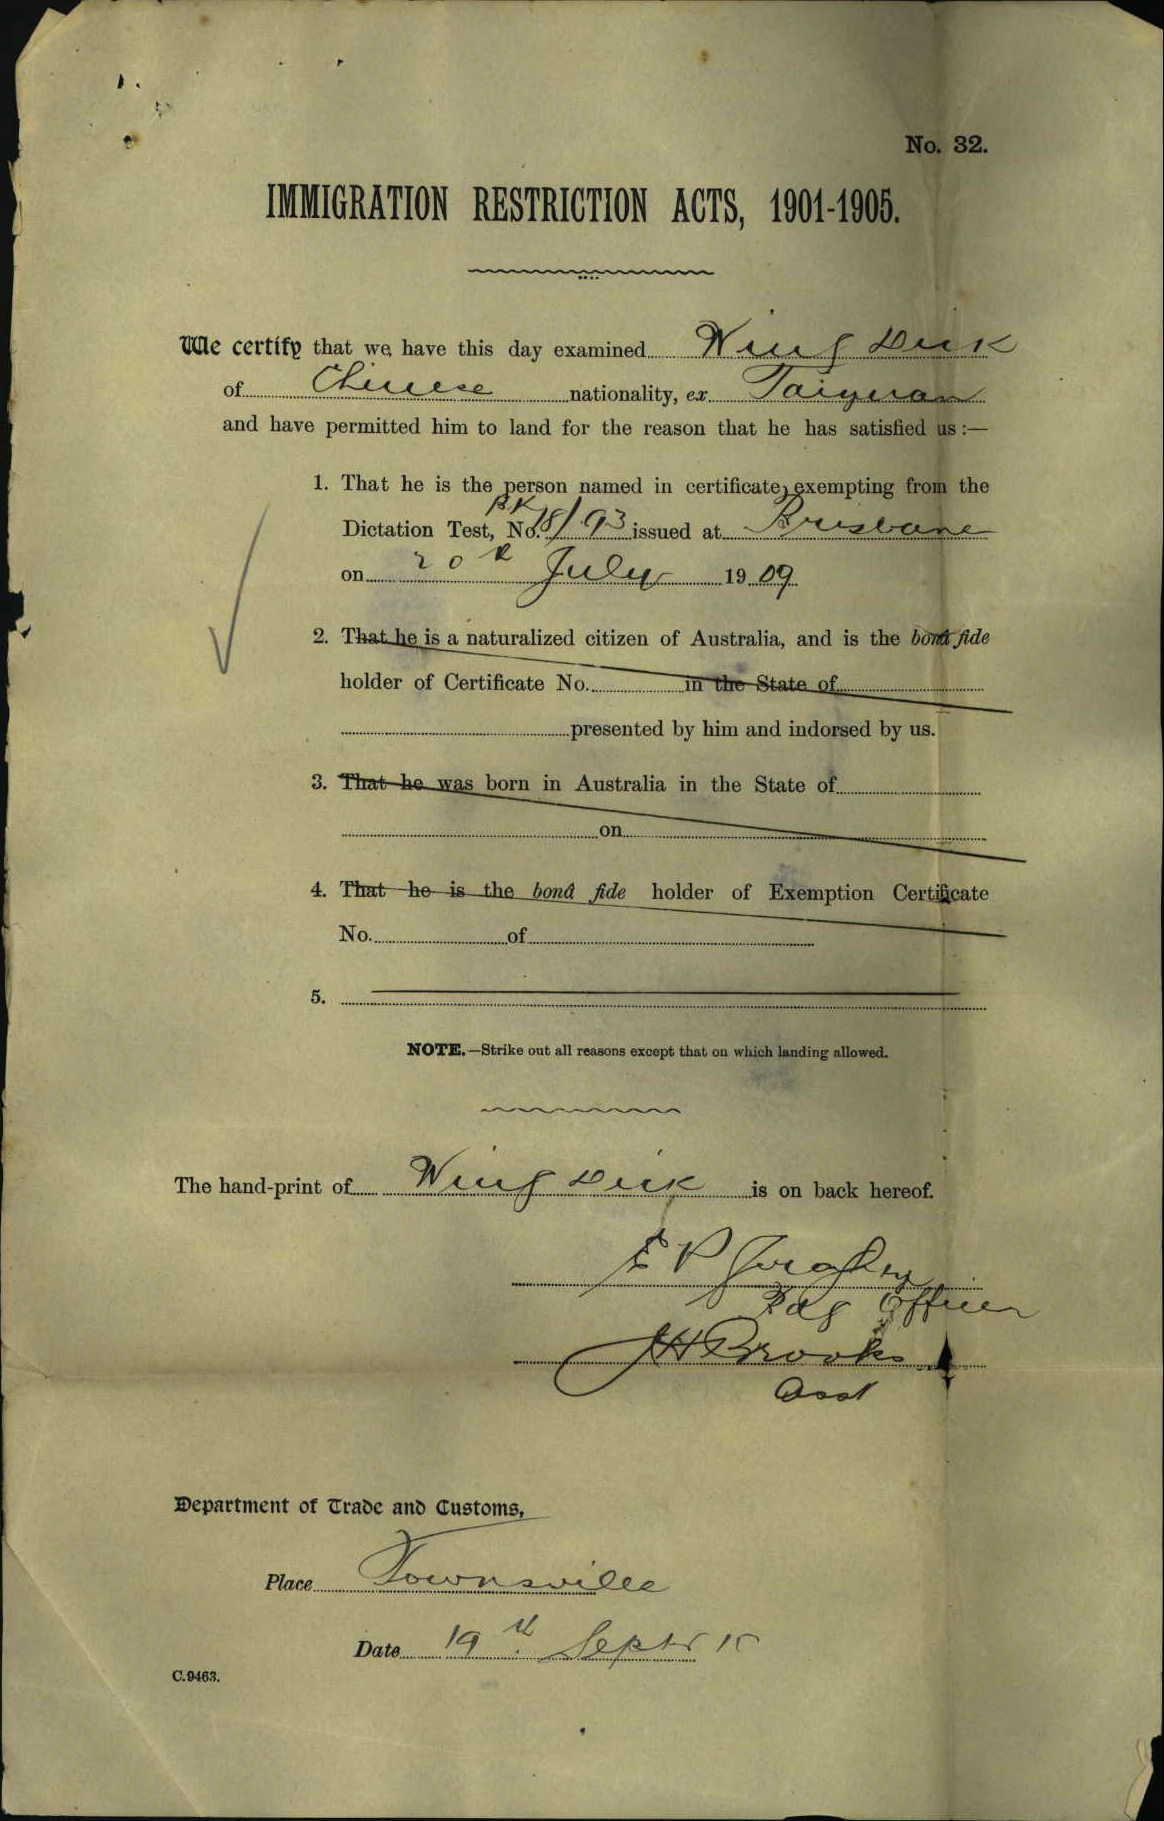 No. 32.
IMMIGRATION RESTRICTION ACTS, 1901-1905.
We certify that we have this day examined Wing Dick
of Chinese nationality, ex Taiyuan
and have permitted him to land for the reason that he has satisfied us :—
1. That he is the person named in certificate, exempting from the
BK
Dictation Test, No. 18/93 issued at Brisbane
on 20th July 1909
2. That he is a naturalized citizen of Australia, and is the bonâ fide
holder of Certificate No. in the State of
presented by him and indorsed by us.
3. That he was born in Australia in the State of
on
4. That he is the bonâ fide holder of Exemption Certificate
No. of
5.
NOTE.—Strike out all reasons except that on which landing allowed.
The hand-print of Wing Dick is on back hereof.
E P
Bdg Officer
JH Brooks
Asst
Department of Trade and Customs,
Place Townsville
Date 19th Septr 15
C.9463.